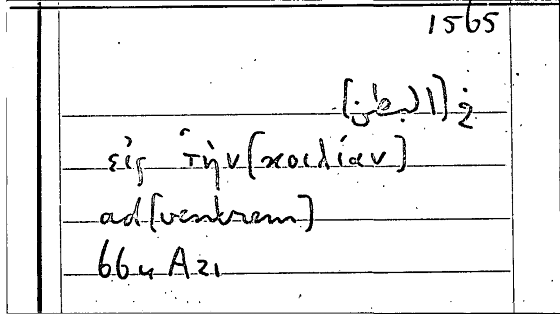 1565
في [البطن]
εἰς τὴν [κοιλίαν]
ad [ventrem]
66u A21